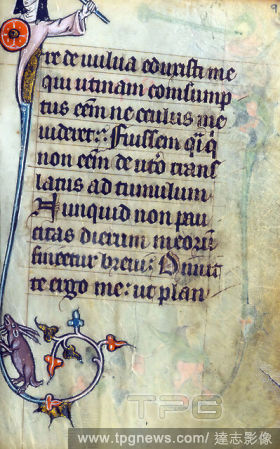 9
re de vulua eduxisti me
qui utinam consump
tus eēm ne oculus me
videret: Fuissem q̄ q̄
non eēm de uto trans
latus ad tumulum
Nunquid non pau
citas dierum meorū
finietur breui: Dimit
te ergo me: ut plan
TPG
www.tpgnews.com/達志影像